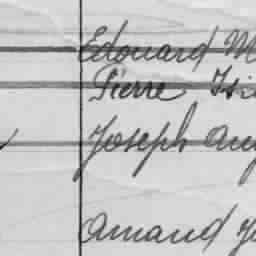 Edouard M
Pierre Isi
Joseph Aug
Amand J